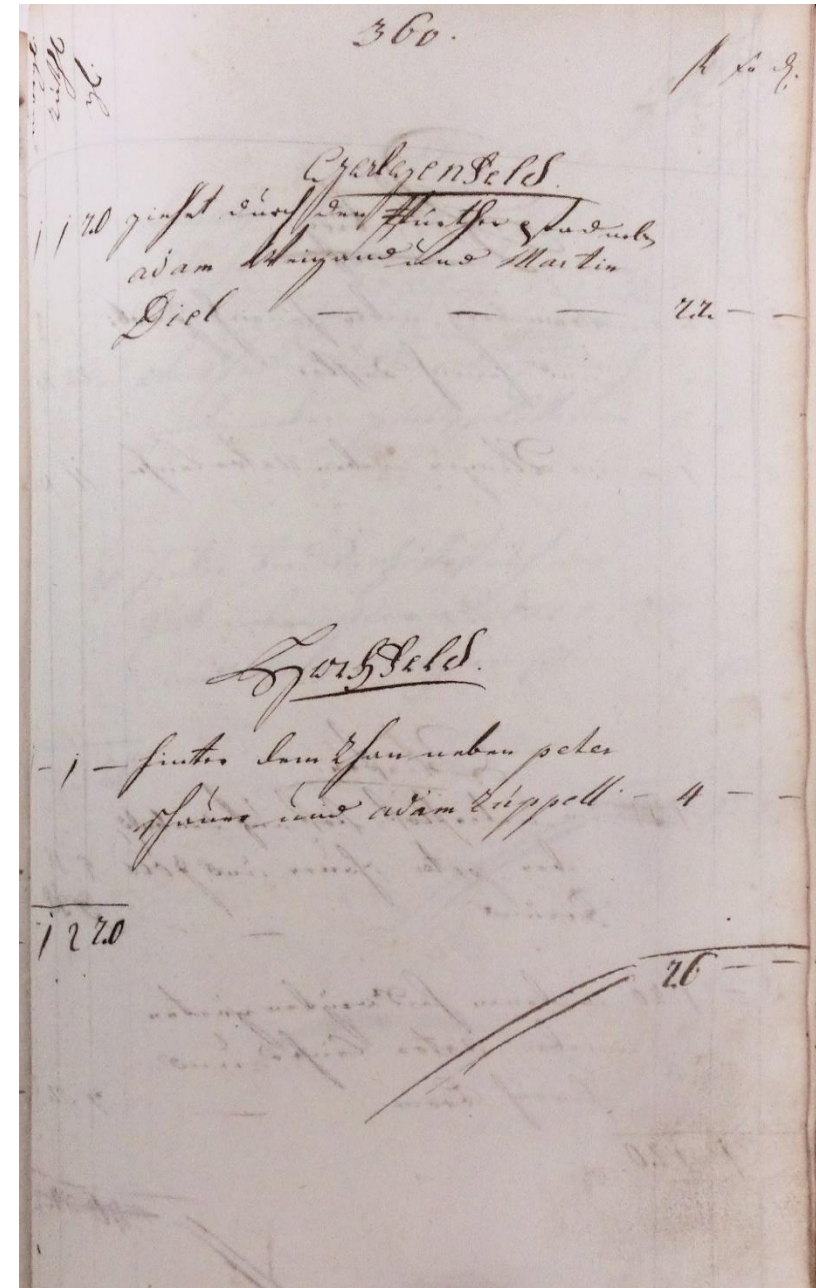 360.
fl xr ₰.
1 1 20 ziehet durch den Further pfad neben
adam Weigand und Martin
Diel — — — 22 — —
Hochfeld.
— 1 — hinter dem neben peter
und adam Rüppell — 4 — —
1 2 20
26 — —